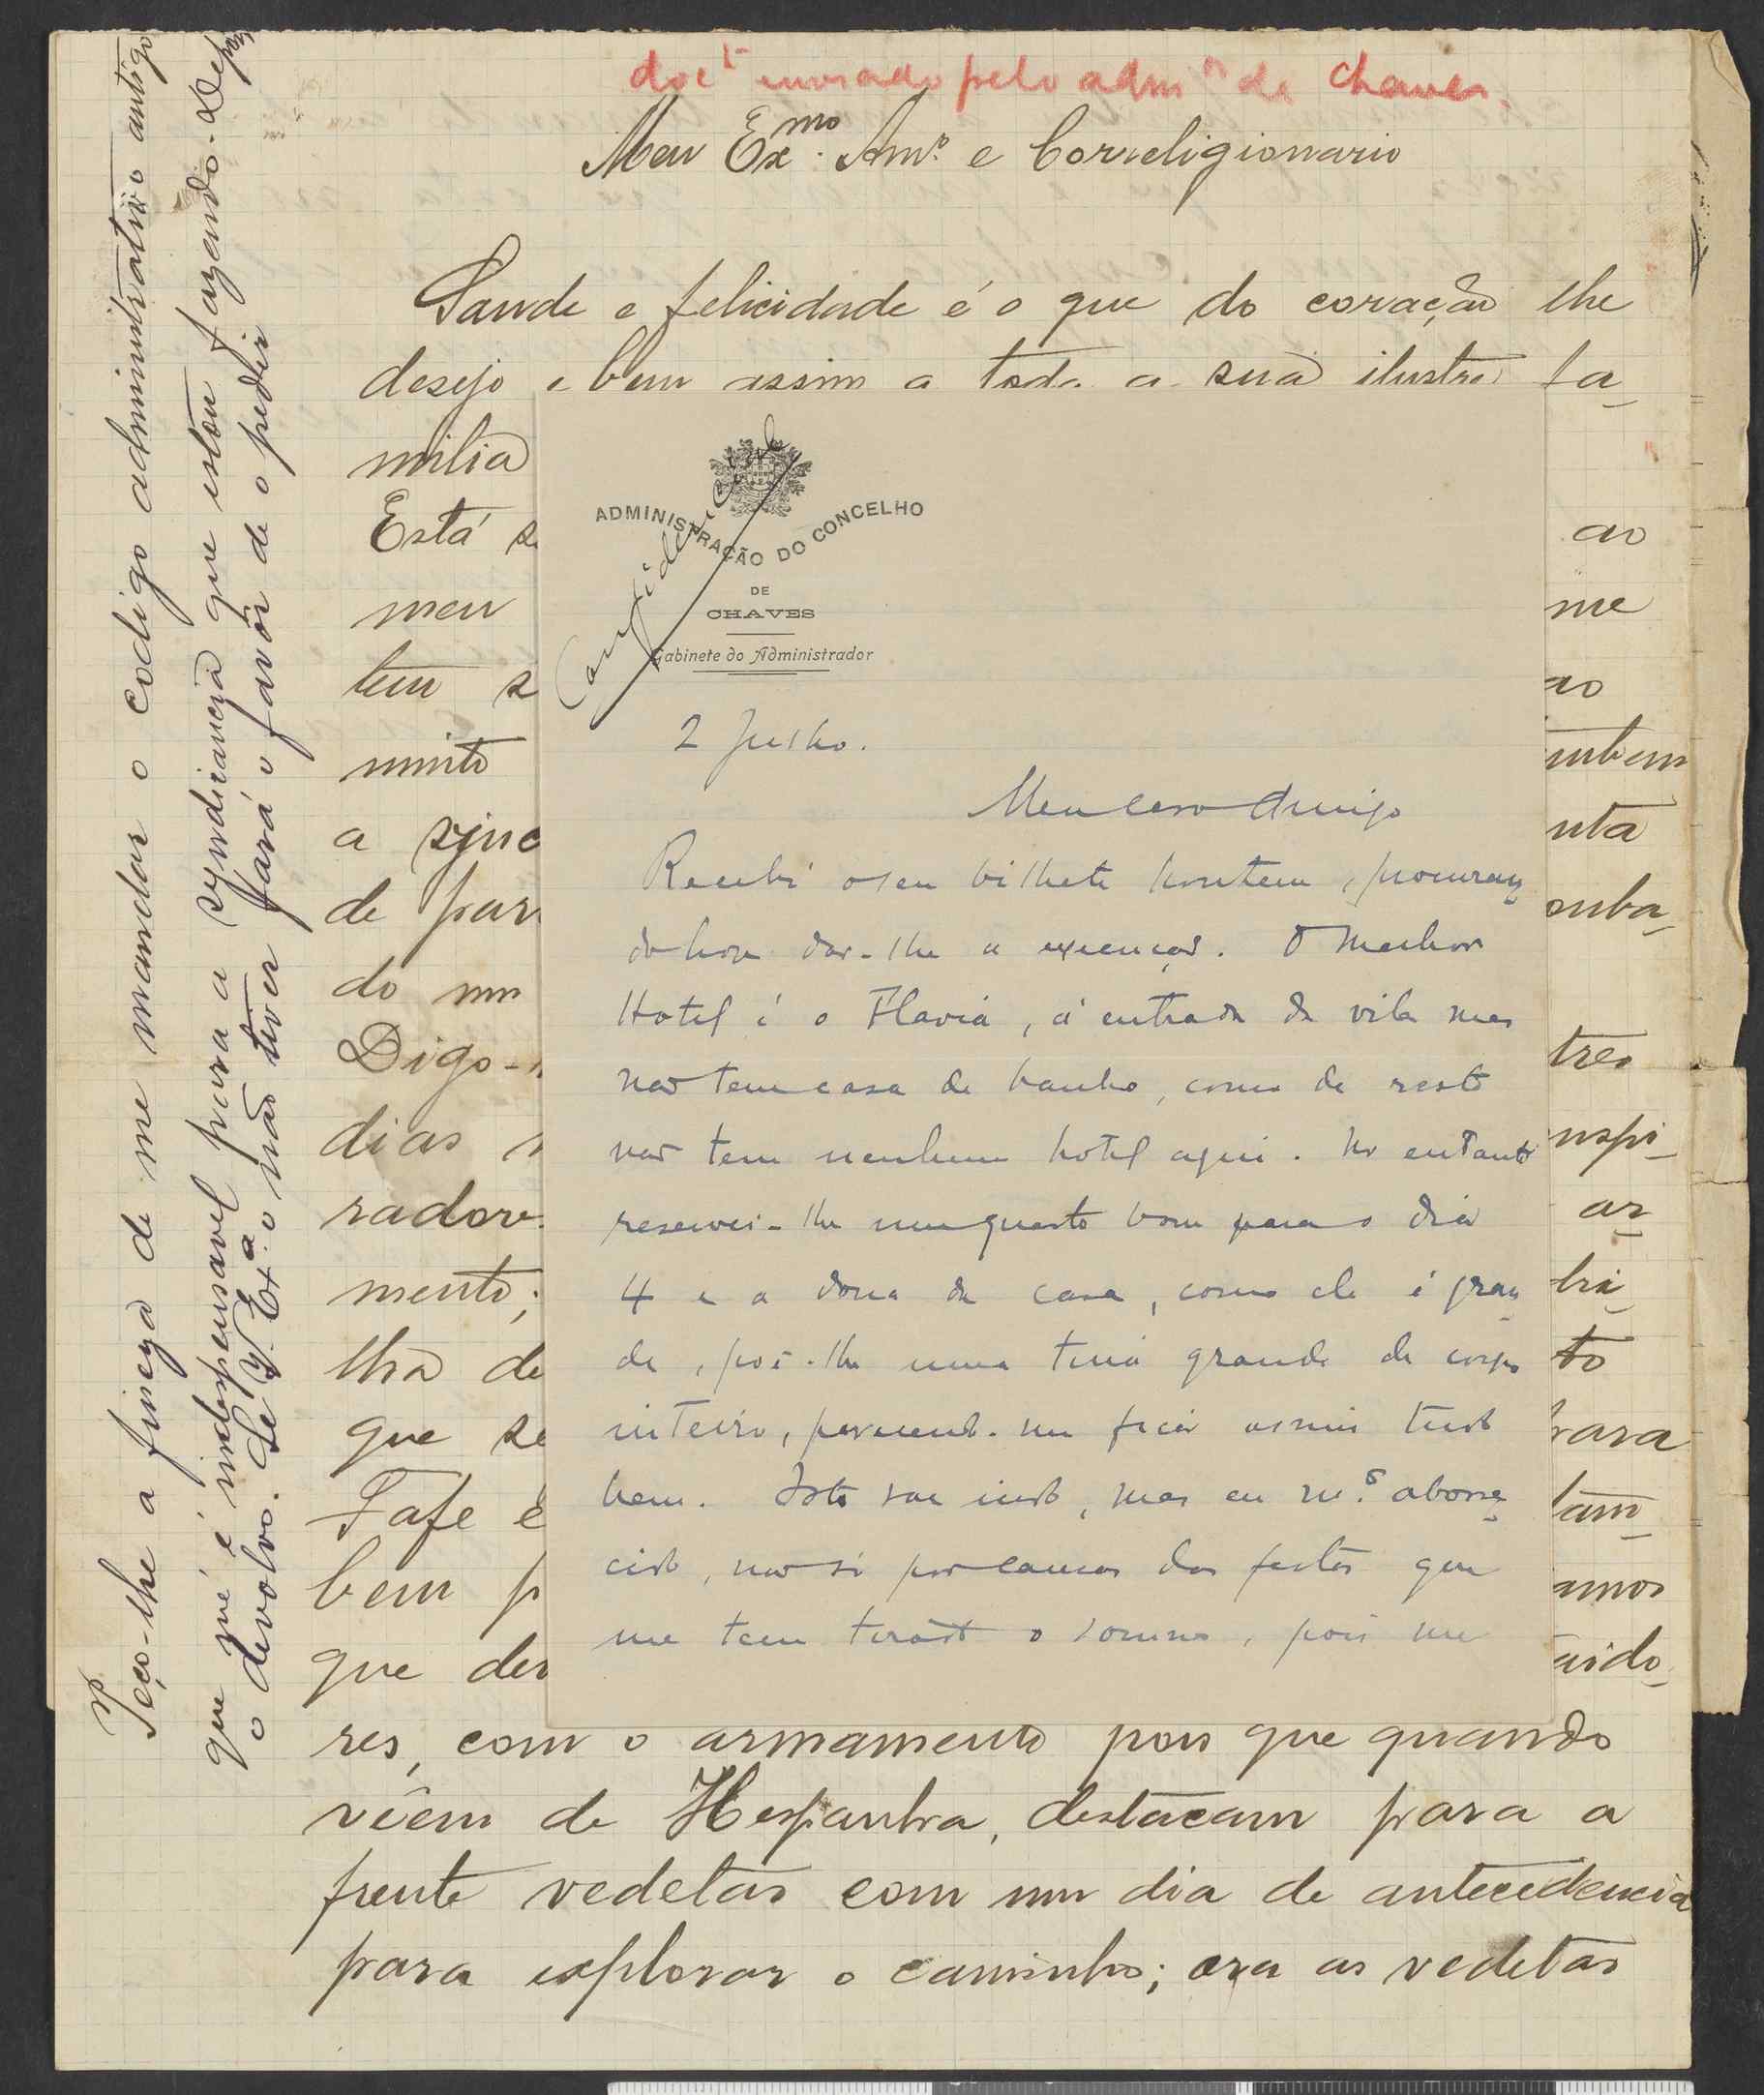 doct enviado pelo admor de Chaves.
Meu Exmo. Amo. e Correligionario
Saude e felicidade é o que do coração lhe
desejo e bem assim a toda a sua ilustre fa-
milia
Está s
meu
tem s
muito
a sync
de par
do um
Digo-
dias
radore
mento;
lha de
que se
Fafe é
bem p
que der
ao
me
ao
mbem
nta
omba-
tres
nspi-
ar-
bri-
to
para
tam-
amos
aido-
res, com o armamento pois que quando
vêem de Hespanha, destacam para a
frente vedetas com um dia de antecedencia
para explorar o caminho; ora as vedetas
Peço-lhe a fineza de me mandar o codigo administrativo antigo
que me é indespensavel para a syndicancia que estou fazendo. Depois
o devolvo. Se V. Exa. o não tiver fará o favôr de o pedir
Confidencial
ADMINISTRAÇÃO DO CONCELHO
DE
CHAVES
Gabinete do Administrador
2 Julho.
Meu caro Amigo
Recebi o seu bilhete hontem, procuran-
do hoje dar-lhe a execução. O melhor
Hotel é o Flavia, á entrada da vila mas
não tem casa de banho, como de resto
não tem nenhum hotel aqui. No entanto
reservei-lhe um quarto bom para o dia
4 e a dona da casa, como ele é gran-
de, poz-lhe uma tina grande de corpo
inteiro, parecendo-me ficar assim tudo
bem. Isto vae indo, mas eu mo. aborre-
cido, não só por causa das festas que
me tem tirado o somno, pois me